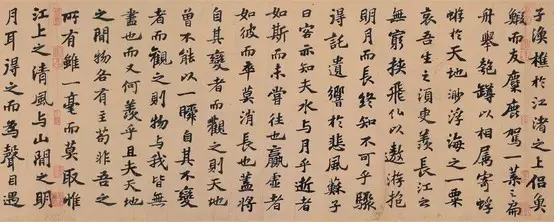 子漁樵於江渚之上侶魚
鰕而友麋鹿駕一葉之扁
舟舉匏罇以相属寄蜉
蝣於天地渺浮海之一粟
哀吾生之須臾羨長江之
無窮挾飛仙以遨游抱
明月而長終知不可乎驟
得託遺響於悲風蘇子
曰客亦知夫水與月乎逝者
如斯而未嘗往也贏虛者
如彼而卒莫消長也蓋將
自其變者而觀之則天地
曾不能以一瞬自其不變
者而觀之則物與我皆無
盡也而又何羨乎且夫天地
之間物各有主苟非吾之
所有雖一毫而莫取惟
江上之清風與山間之明
月耳得之而為聲目遇